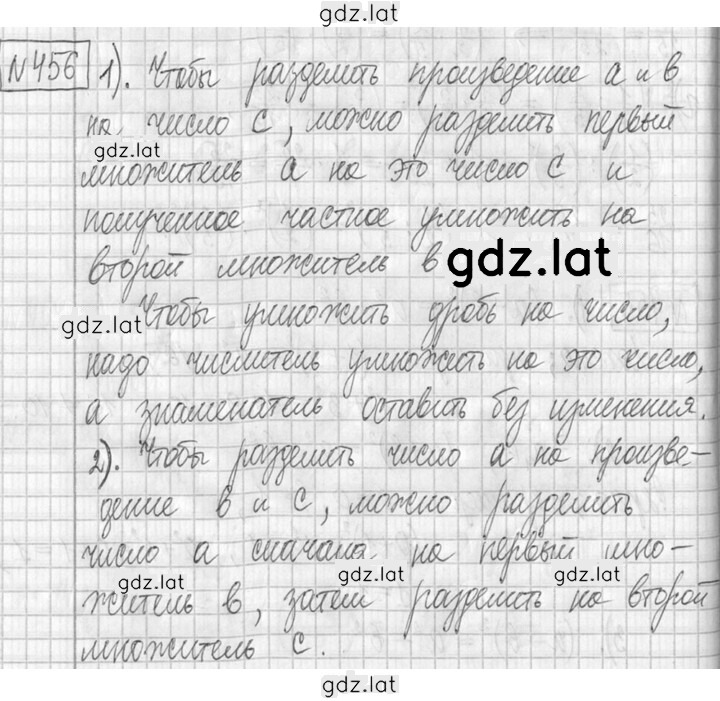 gdz.lat
№456 1). Чтобы разделить произведение а и в
на число с, можно разделить первый
gdz.lat
множитель а на это число с и
полученное частное умножить на
второй множитель в gdz.lat
Чтобы умножить дробь на число,
gdz.lat
надо числитель умножить на это число,
а знаменатель оставить без изменения.
2). Чтобы разделить число а на произве-
дение в и с, можно разделить
число а сначала на первый мно-
gdz.lat gdz.lat gdz.lat
житель в, затем разделить на второй
множитель с.
gdz.lat